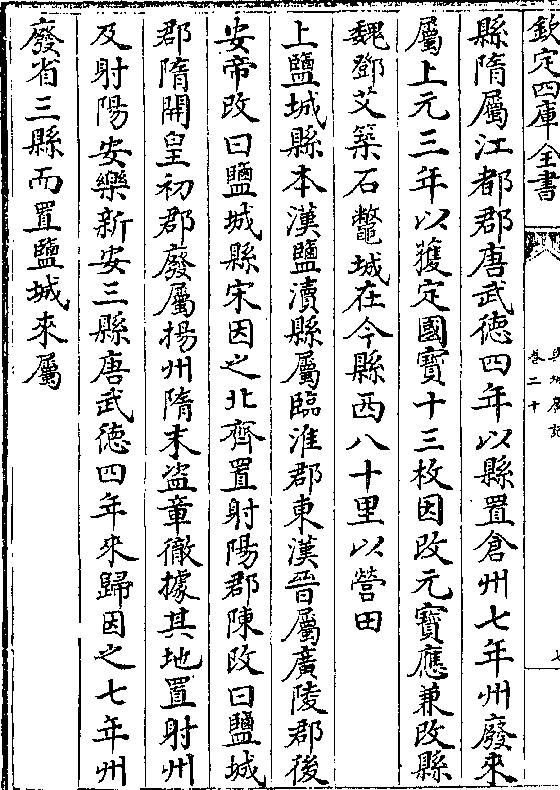 欽定四庫全書
卷二十
縣隋屬江都郡唐武徳四年以縣置倉州七年州廢來
屬上元三年以獲定國寶十三枚因改元寶應兼改縣
魏鄧艾築石鼈城在今縣西八十里以營田
上鹽城縣本漢鹽瀆縣屬臨淮郡東漢晉屬廣陵郡後
安帝改曰鹽城縣宋因之北齊置射陽郡陳改曰鹽城
郡隋開皇初郡廢屬揚州隋末盜章徹據其地置射州
及射陽安樂新安三縣唐武徳四年來歸因之七年州
廢省三縣而置鹽城來屬